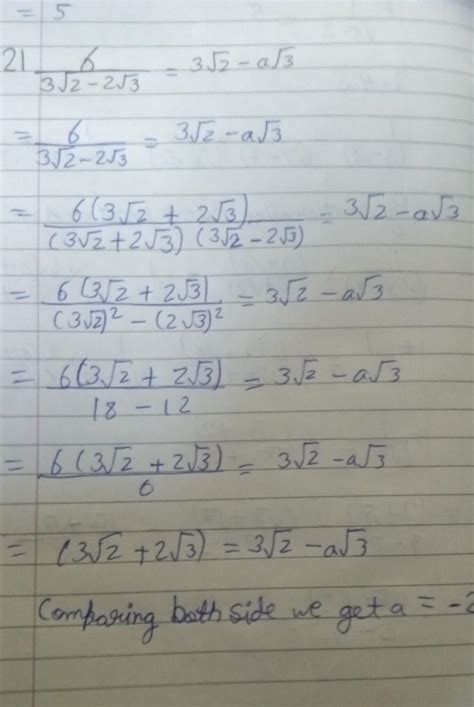 = 5
21 6/(3√2 – 2√3) = 3√2 – a√3
= 6/(3√2 – 2√3) = 3√2 – a√3
= 6(3√2 + 2√3)/(3√2 + 2√3) (3√2 – 2√3) = 3√2 – a√3
= 6(3√2 + 2√3)/(3√2)² – (2√3)² = 3√2 – a√3
= 6(3√2 + 2√3)/18 – 12 = 3√2 – a√3
= 6(3√2 + 2√3)/6 = 3√2 – a√3
= (3√2 + 2√3) = 3√2 – a√3
Comparing both side we get a = -2